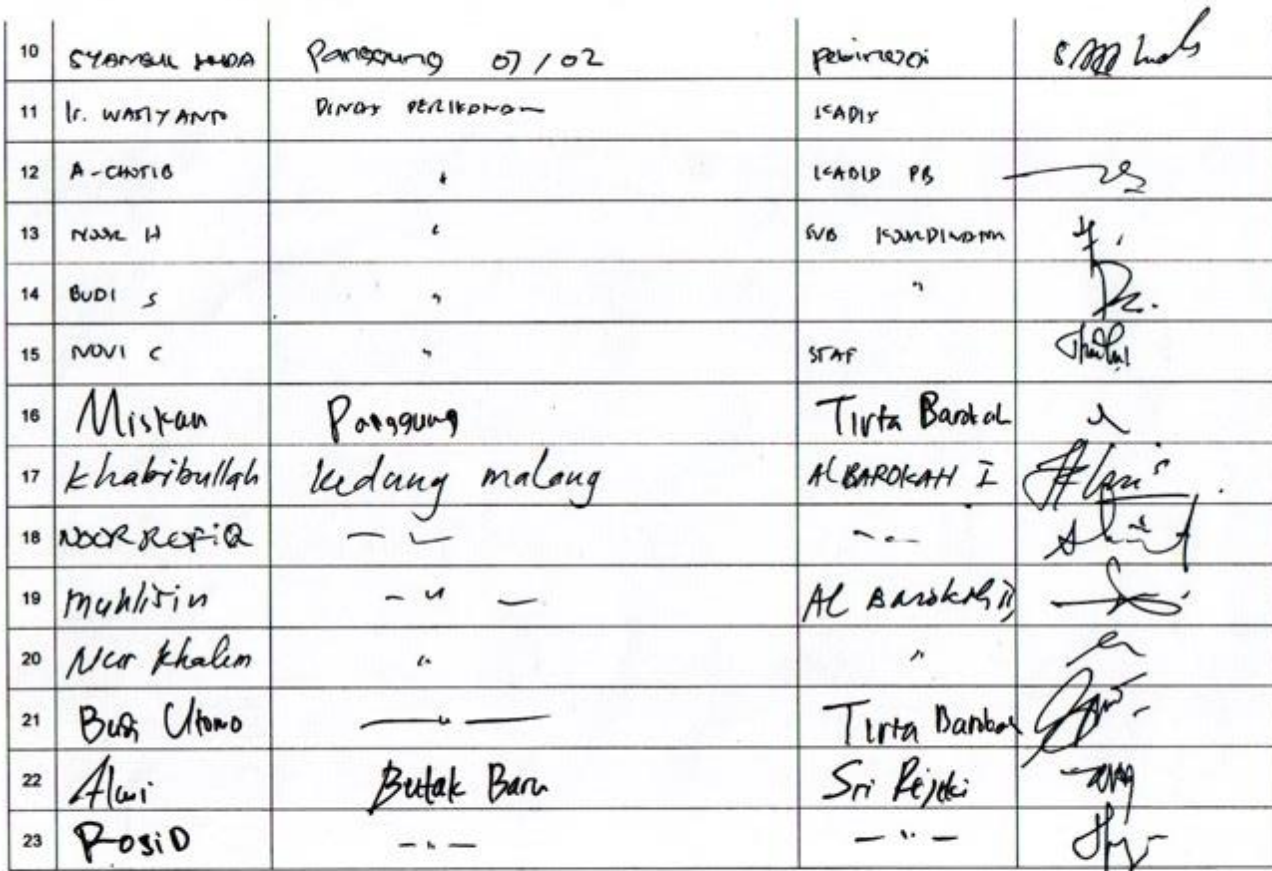 10 SYAMSUL HUDA Panggung 07/02 s HudA
11 Ir. WASIYANTO DINAS PERIKANAN KADIS
12 A-CHOTIB " KABID PB
13 NOOR H " SUB KOORDINATOR
14 BUDI S " "
15 NOVI C " STAF
16 Miskan Panggung Tirta Barokah
17 Khabibullah kedung malang AL BAROKAH I
18 NOOR ROFiQ — " — " —
19 Muhlisin — " — AL Barokah II
20 Nur Khalim " "
21 Budi Utomo — " — Tirta Barokah
22 Alwi Butak Baru Sri Rejeki
23 RosiD — " — — " —